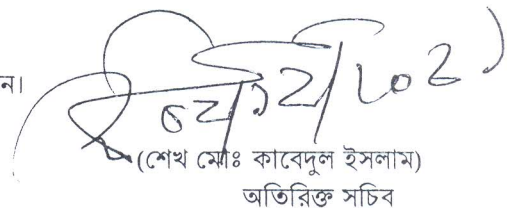 ন।
(শেখ মোঃ কাবেদুল ইসলাম)
অতিরিক্ত সচিব